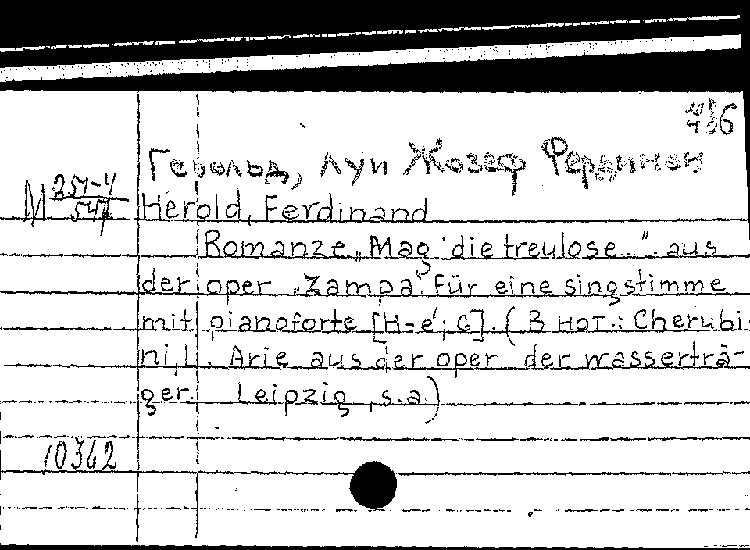 Герольд, Луи Жозеф Фердинан
М 251-4/547
Herold, Ferdinand
Romanze „Mag die treulose.." aus
der oper „Zampa". Für eine singstimme
mit pianoforte [H-e'; G]. (В нот.: Cherubi-
ni, L. Arie aus der oper der wasserträ-
ger. Leipzig, s.a.)
10362